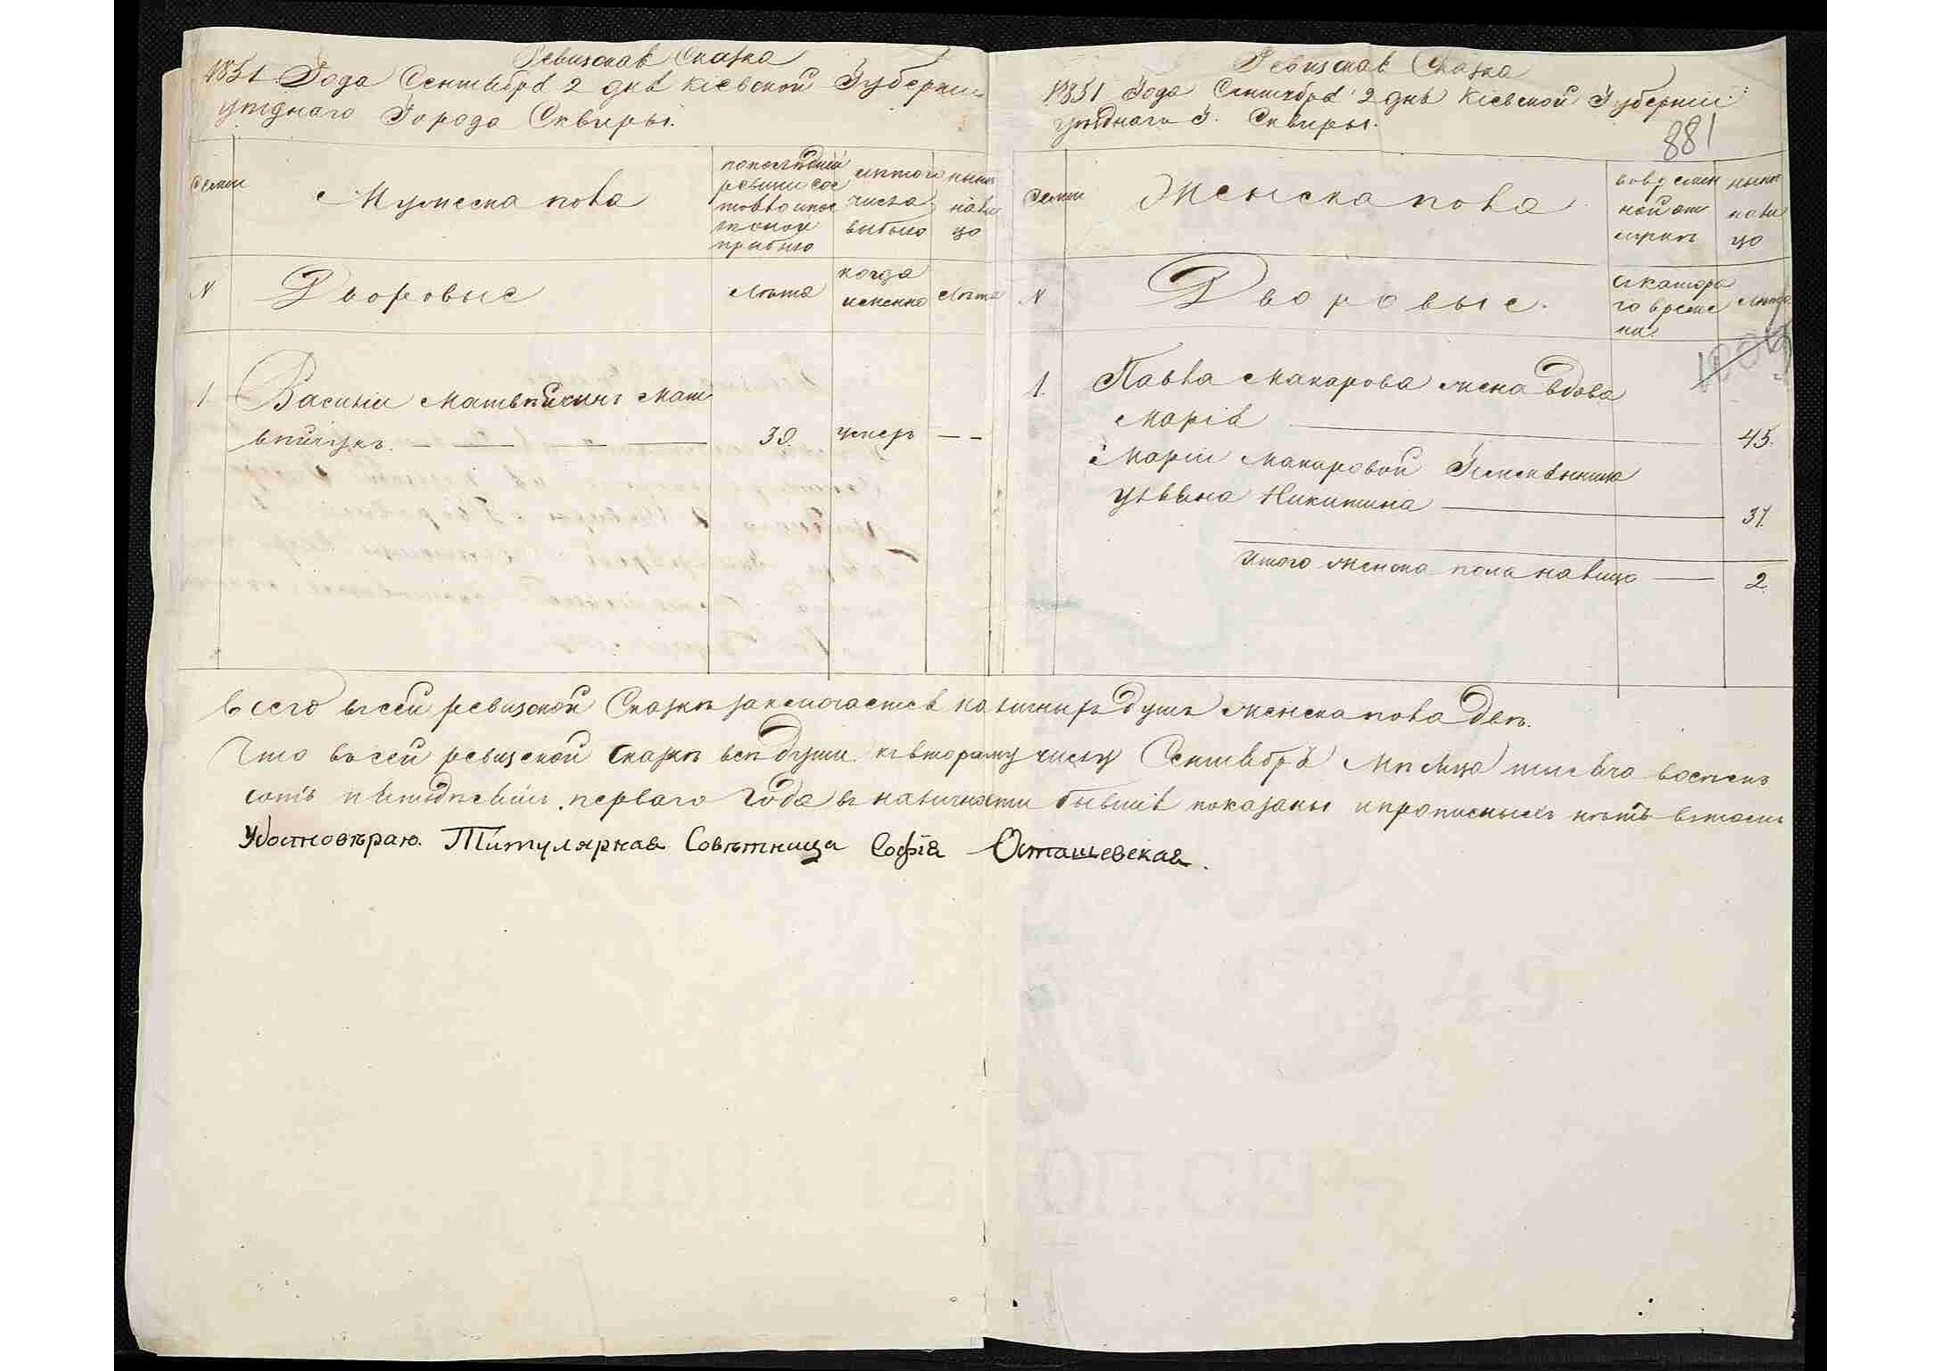 Ревизская Сказка
1851 Года Сентября 2 дня Кіевской Губерніи
уѣзднаго Города Сквиры.
Семьи
Мужеска пола
по последней ревизіи состояло и после того прибыло
изъ того числа выбыло
ныне на лицо
N
Дворовыс
лѣта
когда именно
лѣта
1
Василій Матвѣикинъ Мат
вѣйчукъ. — — — —
30.
умеръ
— —
Ревизская Сказка
1851 Года Сентября 2 дня Кіевской Губерніи
уѣзднаго Г. Сквиры.
881
Семьи
Женска пола.
во временной отлучкѣ
ныне на лицо
N
Дворовые.
съ котора го време ни
лѣта
1.
Павла Макарова жена вдова
Марія
45.
Маріи Макаровой Племянница
Ульяна Никитина
37.
Итого женска пола налицо —
2.
Всего въ сей ревизской Сказкѣ заключается налицо душъ женска пола двѣ.
Что въ сей ревизской Сказкѣ всѣ души къ второму числу Сентября Мѣсяца тысяча восемь
сотъ пятьдесятъ перваго Года въ наличности бывшія показаны и прописныхъ нѣтъ в томъ
Удостовѣраю. Титулярная Совѣтница Софія Осташевская.